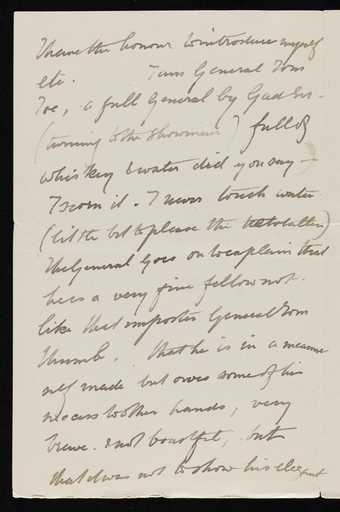 I have the honour to introduce myself
etc. I am General Tom
Toe, a full General by Gad Sir -
(turning to the showman) full of
whiskey & water did you say -
I scorn it. I never touch water
(little bit to please the teetotallers)
The General goes on to explain that
he is a very fine fellow not
like that imposter General Tom
Thumb. That he is in a manner
self made but owes some of his
success to other hands, very
brave & not boastful, but
that it was not to show his